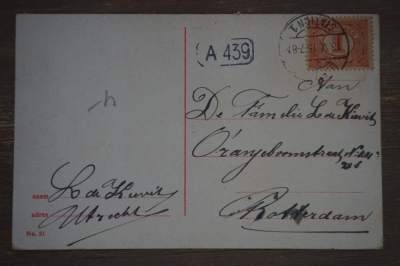 A 439
STATION
1
Aan
De Familie L de Kievit
Oranjeboomstraat
Rotterdam
4
naam
L de Kievit
adres
Utrecht
No. 31